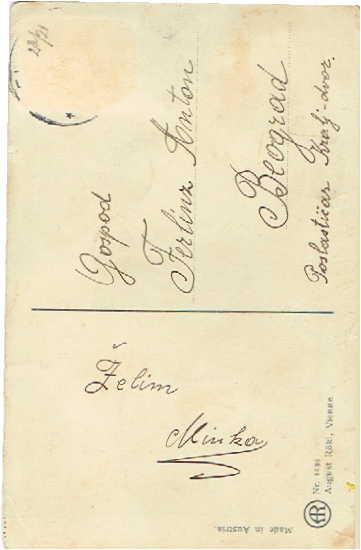 Želim
Minka
Gospod
Ferlinz Anton
Beograd
Poslastičar Kralj-dvor.
August Rökl, Vienne
Made in Austria.